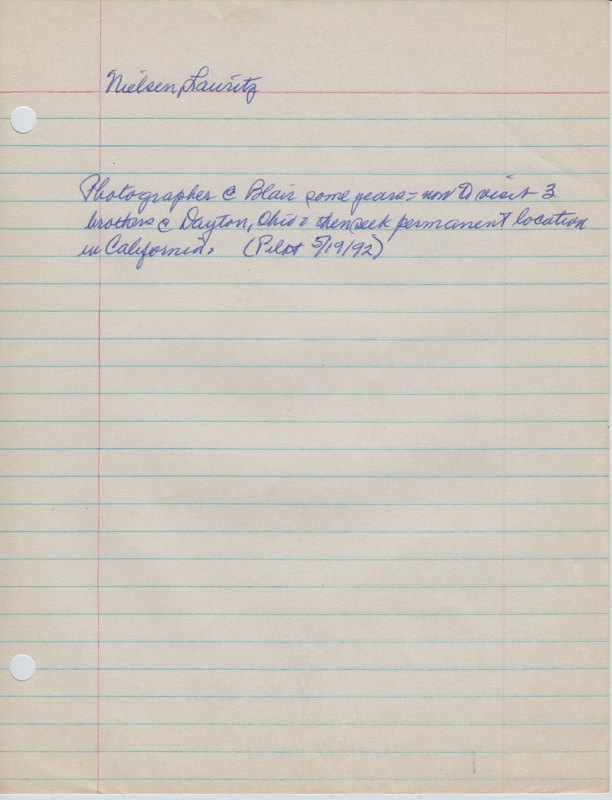 Nielsen, Lauritz
Photographer @ Blair some years - now to visit 3
brothers @ Dayton, Ohio - then seek permanent location
in California. (Pilot 5/19/92)